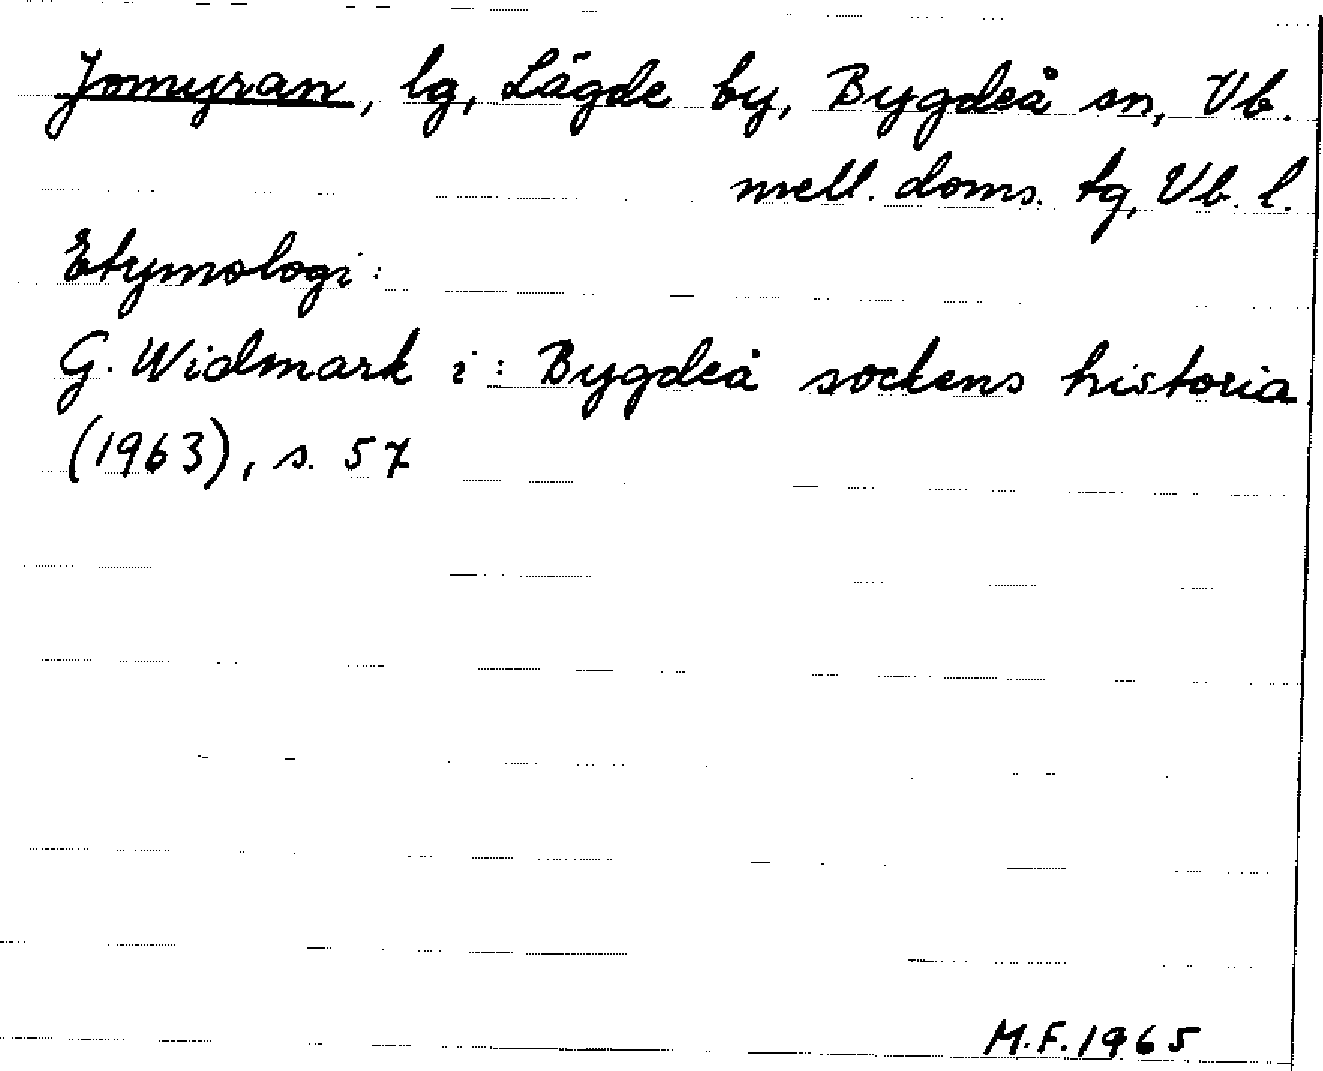 Jomyran, lg, Lägde by, Bygdeå sn, Vb.
mell. doms. tg, Vb. l.
Etymologi:
G. Widmark i: Bygdeå sockens historia
(1963), s. 57
M.F. 1965